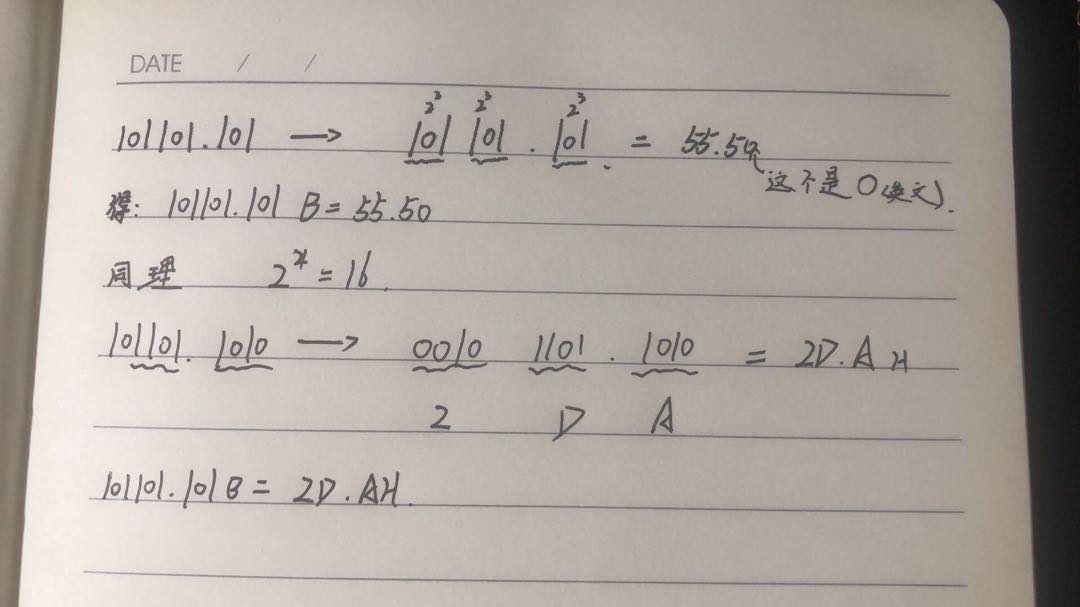 DATE / /
2³ 2³ 2³
101101.101 → 101 101 . 101 = 55.5O
这不是O(英文).
得: 101101.101 B = 55.5O
同理 2^4 = 16.
101101.1010 → 0010 1101 . 1010 = 2D.A H
2 D A
101101.101B = 2D.AH.